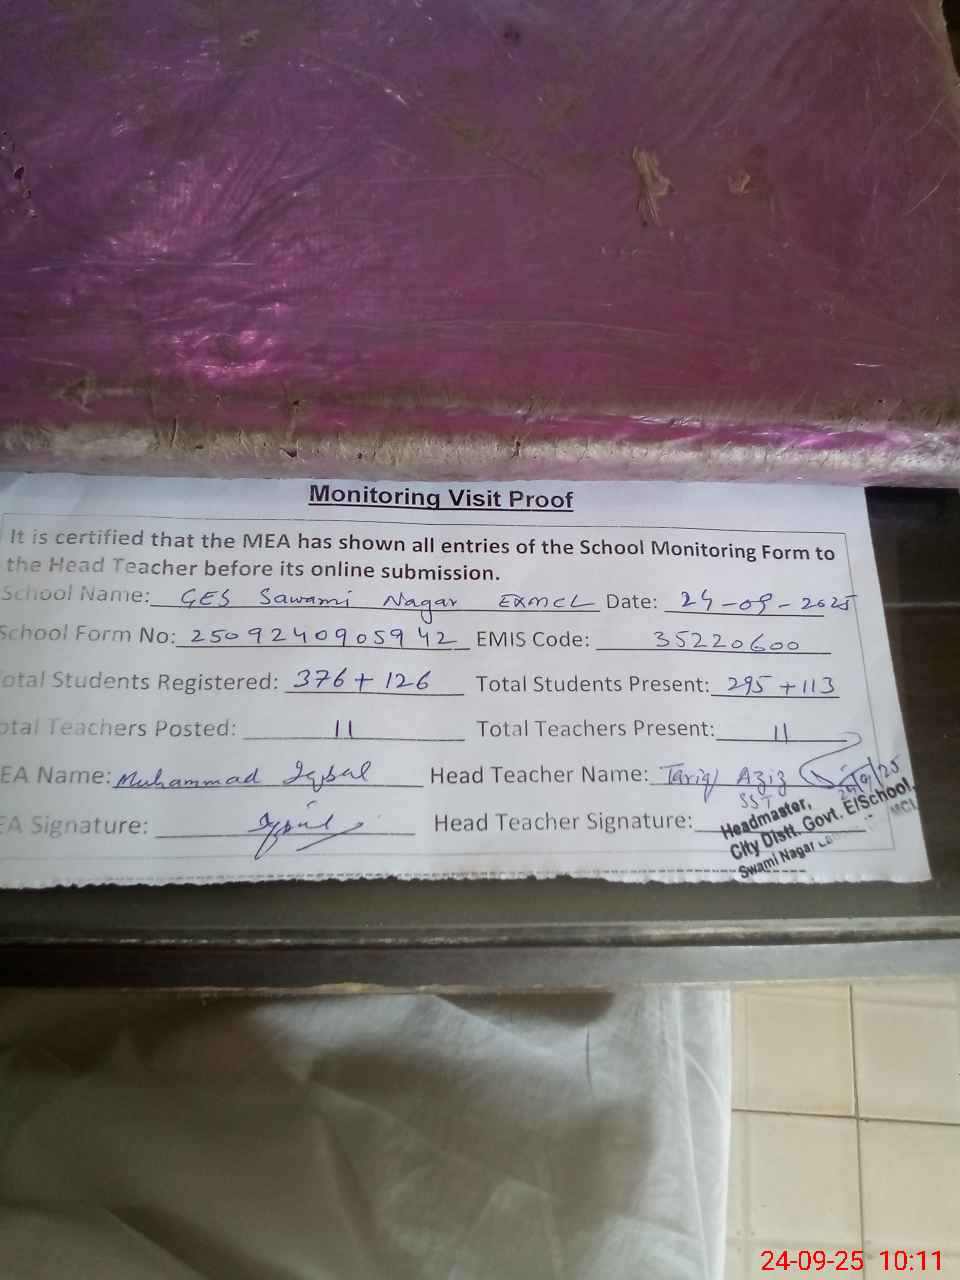 Monitoring Visit Proof
It is certified that the MEA has shown all entries of the School Monitoring Form to
the Head Teacher before its online submission.
School Name: GES Sawami Nagar EXMCL Date: 24-09-2025
School Form No: 2509240905942 EMIS Code: 35220600
otal Students Registered: 376+126 Total Students Present: 295+113
otal Teachers Posted: 11 Total Teachers Present: 11
EA Name: Muhammad Iqbal Head Teacher Name: Tariq Aziz
SST 24/9/25
EA Signature: Iqbal Head Teacher Signature:
Headmaster,
City Distt. Govt. E/School,
Swami Nagar MCL
24-09-25 10:11